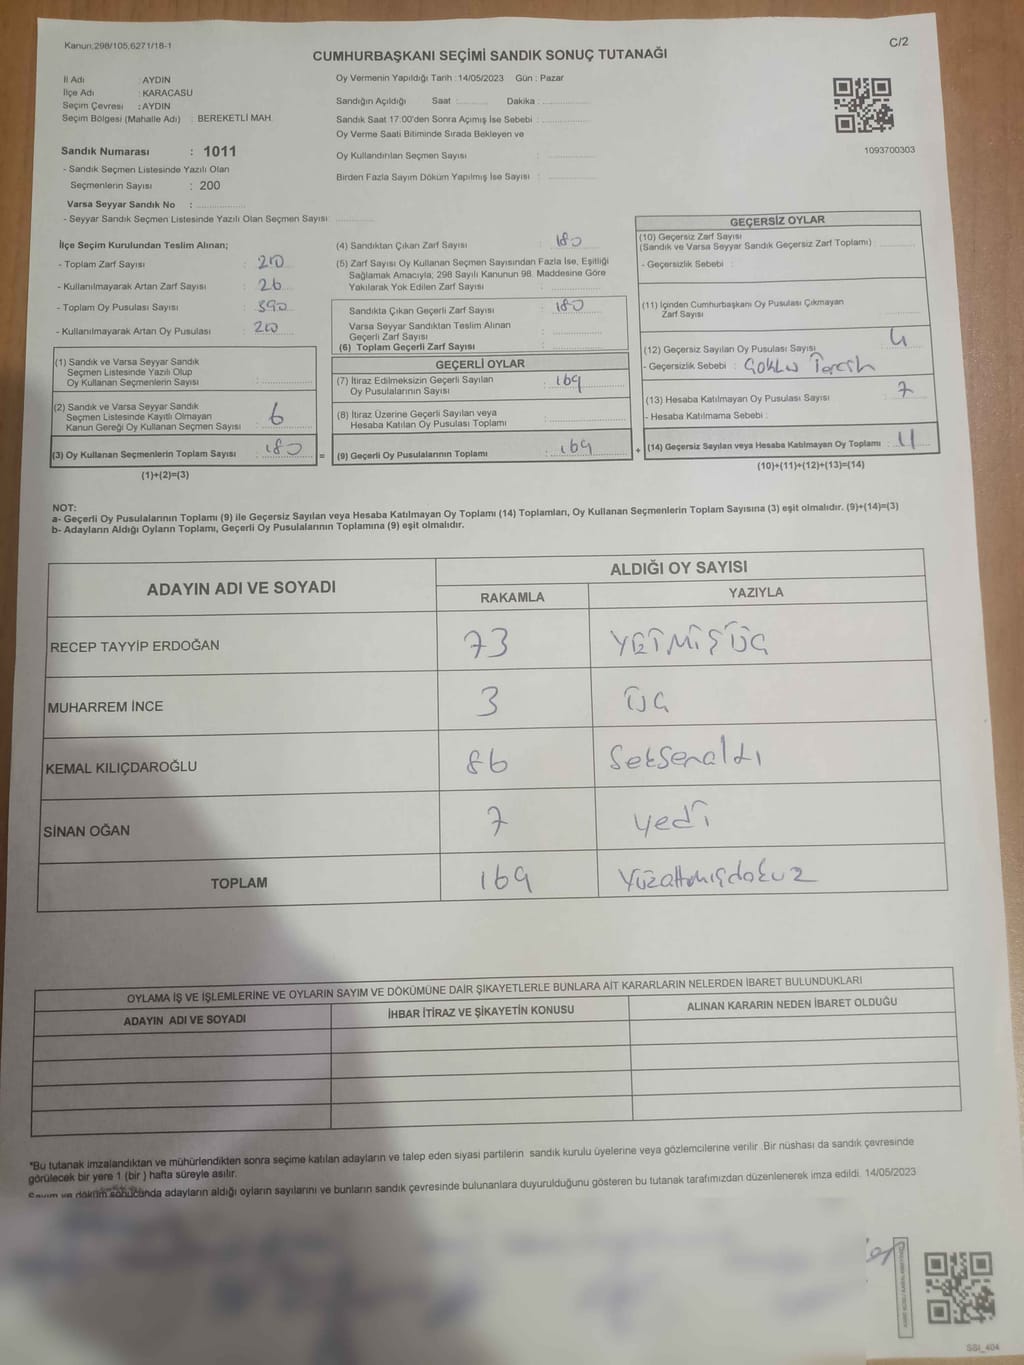 Kanun,298/105,6271/18-1
C/2
CUMHURBAŞKANI SEÇİMİ SANDIK SONUÇ TUTANAĞI
İl Adı : AYDIN
İlçe Adı : KARACASU
Seçim Çevresi : AYDIN
Seçim Bölgesi (Mahalle Adı) : BEREKETLİ MAH.
Sandık Numarası : 1011
- Sandık Seçmen Listesinde Yazılı Olan
Seçmenlerin Sayısı : 200
Varsa Seyyar Sandık No :
- Seyyar Sandık Seçmen Listesinde Yazılı Olan Seçmen Sayısı:
Oy Vermenin Yapıldığı Tarih :14/05/2023 Gün : Pazar
Sandığın Açıldığı Saat : Dakika :
Sandık Saat 17:00'den Sonra Açımış İse Sebebi :
Oy Verme Saati Bitiminde Sırada Bekleyen ve
Oy Kullandırılan Seçmen Sayısı :
Birden Fazla Sayım Döküm Yapılmış İse Sayısı :
1093700303
İlçe Seçim Kurulundan Teslim Alınan;
- Toplam Zarf Sayısı : 210
- Kullanılmayarak Artan Zarf Sayısı : 26
- Toplam Oy Pusulası Sayısı : 390
- Kullanılmayarak Artan Oy Pusulası : 210
(1) Sandık ve Varsa Seyyar Sandık
Seçmen Listesinde Yazılı Olup
Oy Kullanan Seçmenlerin Sayısı :
(2) Sandık ve Varsa Seyyar Sandık
Seçmen Listesinde Kayıtlı Olmayan
Kanun Gereği Oy Kullanan Seçmen Sayısı : 6
(3) Oy Kullanan Seçmenlerin Toplam Sayısı : 180
(1)+(2)=(3)
=
(4) Sandıktan Çıkan Zarf Sayısı : 180
(5) Zarf Sayısı Oy Kullanan Seçmen Sayısından Fazla İse, Eşitliği
Sağlamak Amacıyla; 298 Sayılı Kanunun 98. Maddesine Göre
Yakılarak Yok Edilen Zarf Sayısı :
Sandıkta Çıkan Geçerli Zarf Sayısı : 180
Varsa Seyyar Sandıktan Teslim Alınan
Geçerli Zarf Sayısı :
(6) Toplam Geçerli Zarf Sayısı :
GEÇERLİ OYLAR
(7) İtiraz Edilmeksizin Geçerli Sayılan
Oy Pusulalarının Sayısı : 169
(8) İtiraz Üzerine Geçerli Sayılan veya
Hesaba Katılan Oy Pusulası Toplamı :
(9) Geçerli Oy Pusulalarının Toplamı : 169
+
GEÇERSİZ OYLAR
(10) Geçersiz Zarf Sayısı
(Sandık ve Varsa Seyyar Sandık Geçersiz Zarf Toplamı) :
- Geçersizlik Sebebi :
(11) İçinden Cumhurbaşkanı Oy Pusulası Çıkmayan
Zarf Sayısı :
(12) Geçersiz Sayılan Oy Pusulası Sayısı : 4
- Geçersizlik Sebebi : Çoklu Tercih
(13) Hesaba Katılmayan Oy Pusulası Sayısı : 7
- Hesaba Katılmama Sebebi :
(14) Geçersiz Sayılan veya Hesaba Katılmayan Oy Toplamı : 11
(10)+(11)+(12)+(13)=(14)
NOT:
a- Geçerli Oy Pusulalarının Toplamı (9) ile Geçersiz Sayılan veya Hesaba Katılmayan Oy Toplamı (14) Toplamları, Oy Kullanan Seçmenlerin Toplam Sayısına (3) eşit olmalıdır. (9)+(14)=(3)
b- Adayların Aldığı Oyların Toplamı, Geçerli Oy Pusulalarının Toplamına (9) eşit olmalıdır.
ADAYIN ADI VE SOYADI
ALDIĞI OY SAYISI
RAKAMLA
YAZIYLA
RECEP TAYYİP ERDOĞAN 73 YETMİŞ ÜÇ
MUHARREM İNCE 3 ÜÇ
KEMAL KILIÇDAROĞLU 86 Seksenaltı
SİNAN OĞAN 7 Yedi
TOPLAM 169 Yüzaltmışdokuz
OYLAMA İŞ VE İŞLEMLERİNE VE OYLARIN SAYIM VE DÖKÜMÜNE DAİR ŞİKAYETLERLE BUNLARA AİT KARARLARIN NELERDEN İBARET BULUNDUKLARI
ADAYIN ADI VE SOYADI
İHBAR İTİRAZ VE ŞİKAYETİN KONUSU
ALINAN KARARIN NEDEN İBARET OLDUĞU
*Bu tutanak imzalandıktan ve mühürlendikten sonra seçime katılan adayların ve talep eden siyasi partilerin sandık kurulu üyelerine veya gözlemcilerine verilir. Bir nüshası da sandık çevresinde
görülecek bir yere 1 (bir ) hafta süreyle asılır.
Sayım ve döküm sonucunda adayların aldığı oyların sayılarını ve bunların sandık çevresinde bulunanlara duyurulduğunu gösteren bu tutanak tarafımızdan düzenlenerek imza edildi. 14/05/2023
SSI_404